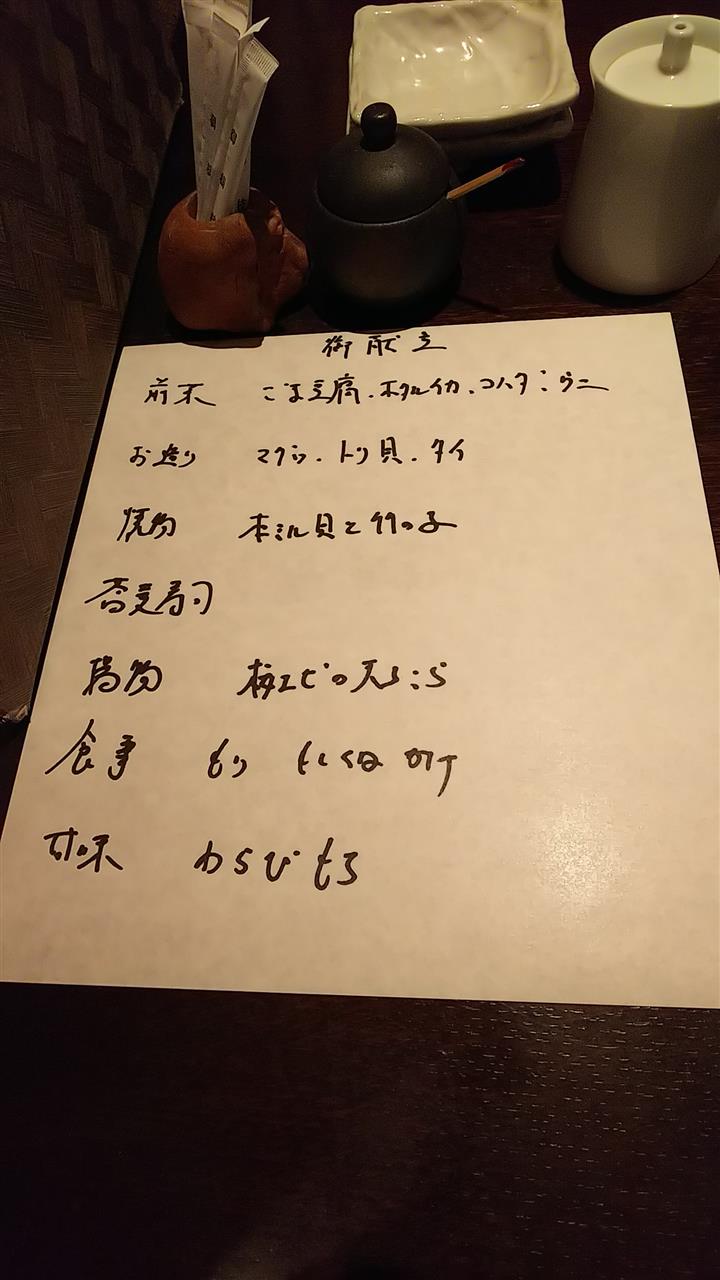 御献立
前末 ごま豆腐、ホタルイカ、コハダ
お造り マグロ、トリ貝、タイ
焼物 本ミル貝と竹の子
蕎麦寿司
揚物 桜エビの天ぷら
食事 もり もしくは かけ
甘味 わらびもち